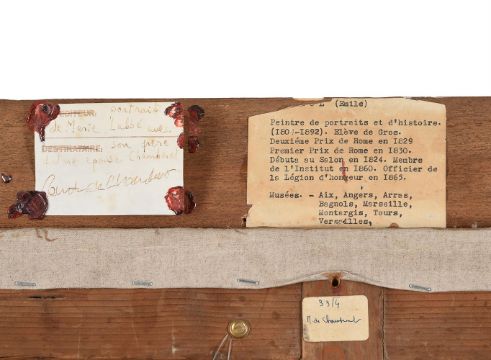 EDITEUR: portrait
de Marie Labbé avec
DESTINATAIRE: son frère
(Emile)
Peintre de portraits et d'histoire.
(1801-1892). Elève de Gros.
Deuxième Prix de Rome en 1829
Premier Prix de Rome en 1830.
Débute au Salon en 1824. Membre
de l'Institut en 1860. Officier de
la Légion d'honneur en 1865.
Musées. - Aix, Angers, Arras,
Bagnols, Marseille,
Montargis, Tours,
Versailles,
33/4
M de